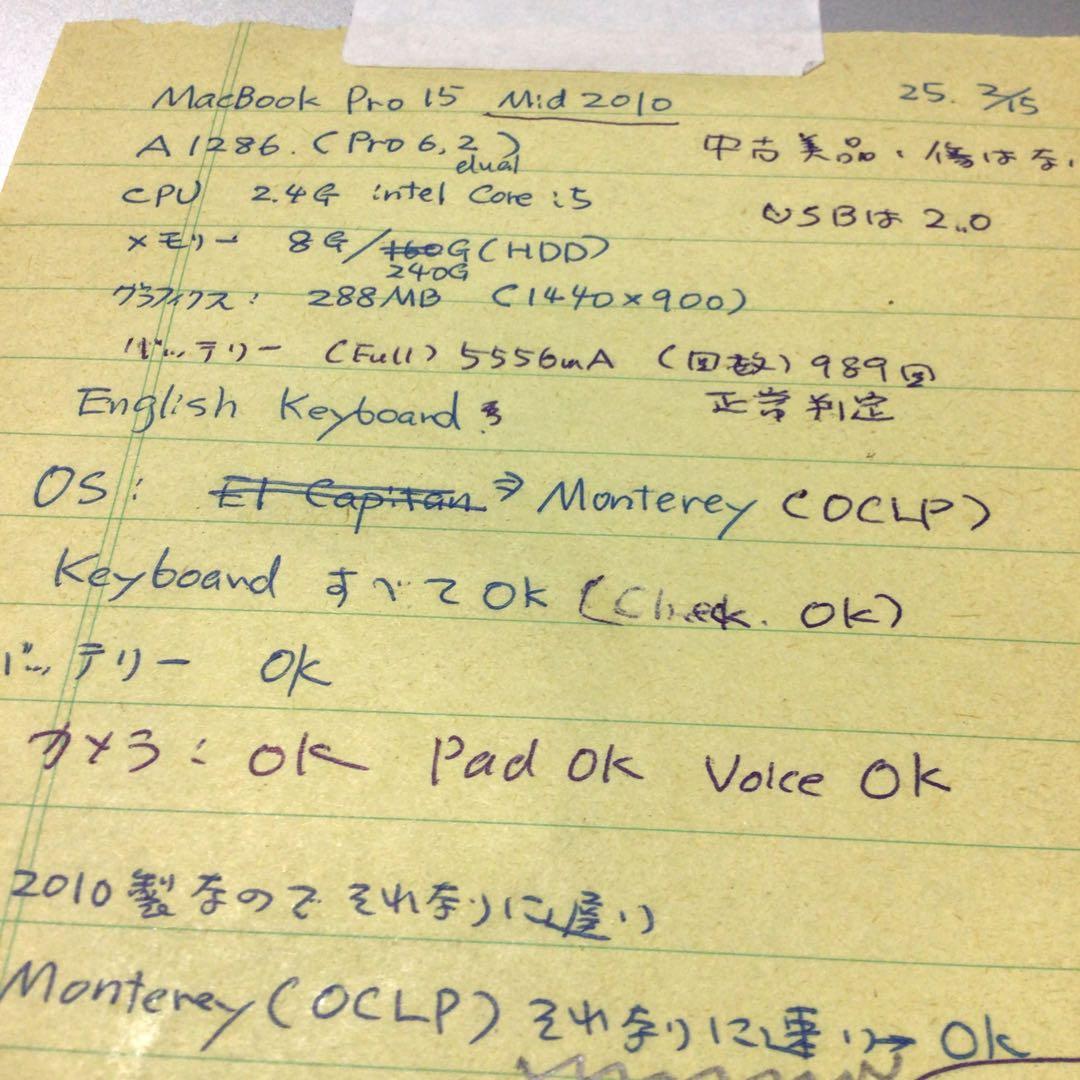 MacBook Pro 15 Mid 2010 25. 2/15
A1286. (Pro 6,2) 中古美品、傷はない
dual
CPU 2.4G intel Core i5 USBは 2.0
メモリー 8G/160G(HDD)
240G
グラフィクス: 288MB (1440×900)
バッテリー (Full) 5556mA (回数) 989回
English Keyboard 正常判定
OS: El Capitan ⇒ Monterey (OCLP)
Keyboard すべて OK (Check. OK)
バッテリー OK
カメラ: OK Pad OK Voice OK
2010製なので それなりに遅い
Monterey (OCLP) それなりに速い→ OK